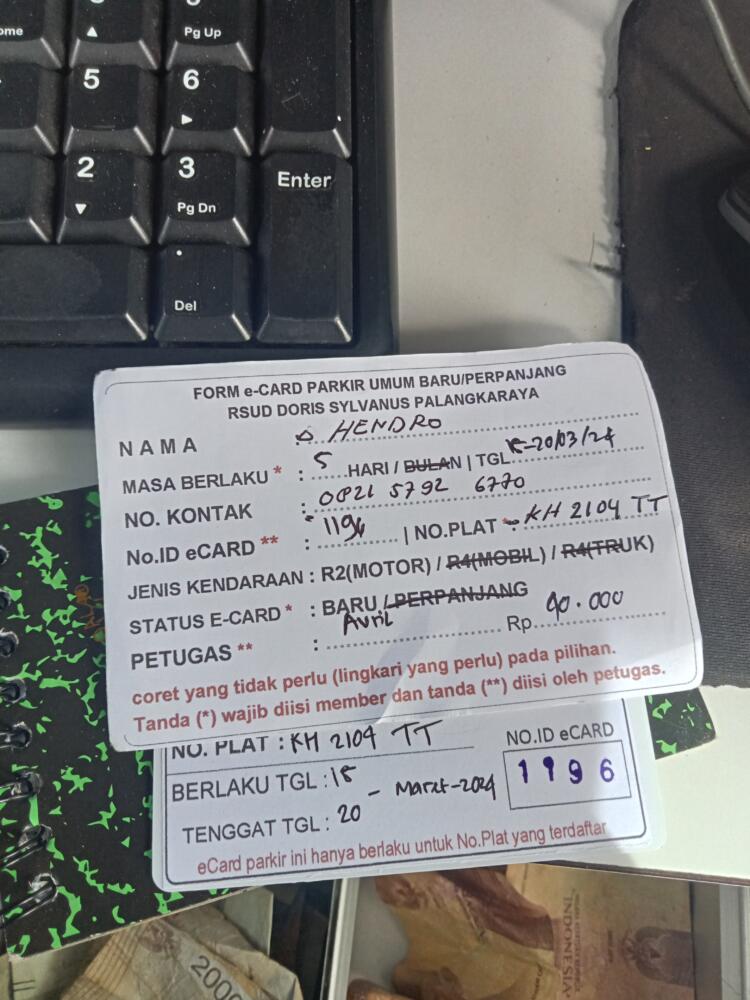 ome
Pg Up
5
6
2
3
Pg Dn
Enter
Del
FORM e-CARD PARKIR UMUM BARU/PERPANJANG
RSUD DORIS SYLVANUS PALANGKARAYA
NAMA HENDRO
MASA BERLAKU * : 5 HARI / BULAN | TGL -20/03/24
NO. KONTAK : 0821 5792 6770
No.ID eCARD ** : 1196 | NO.PLAT * KH 2104 TT
JENIS KENDARAAN : R2(MOTOR) / R4(MOBIL) / R4(TRUK)
STATUS E-CARD * : BARU / PERPANJANG
PETUGAS ** : Avril Rp. 90.000
coret yang tidak perlu (lingkari yang perlu) pada pilihan.
Tanda (*) wajib diisi member dan tanda (**) diisi oleh petugas.
NO. PLAT : KH 2104 TT
NO.ID eCARD
1196
BERLAKU TGL : - Maret-2024
TENGGAT TGL : 20
eCard parkir ini hanya berlaku untuk No.Plat yang terdaftar
INDONESIA